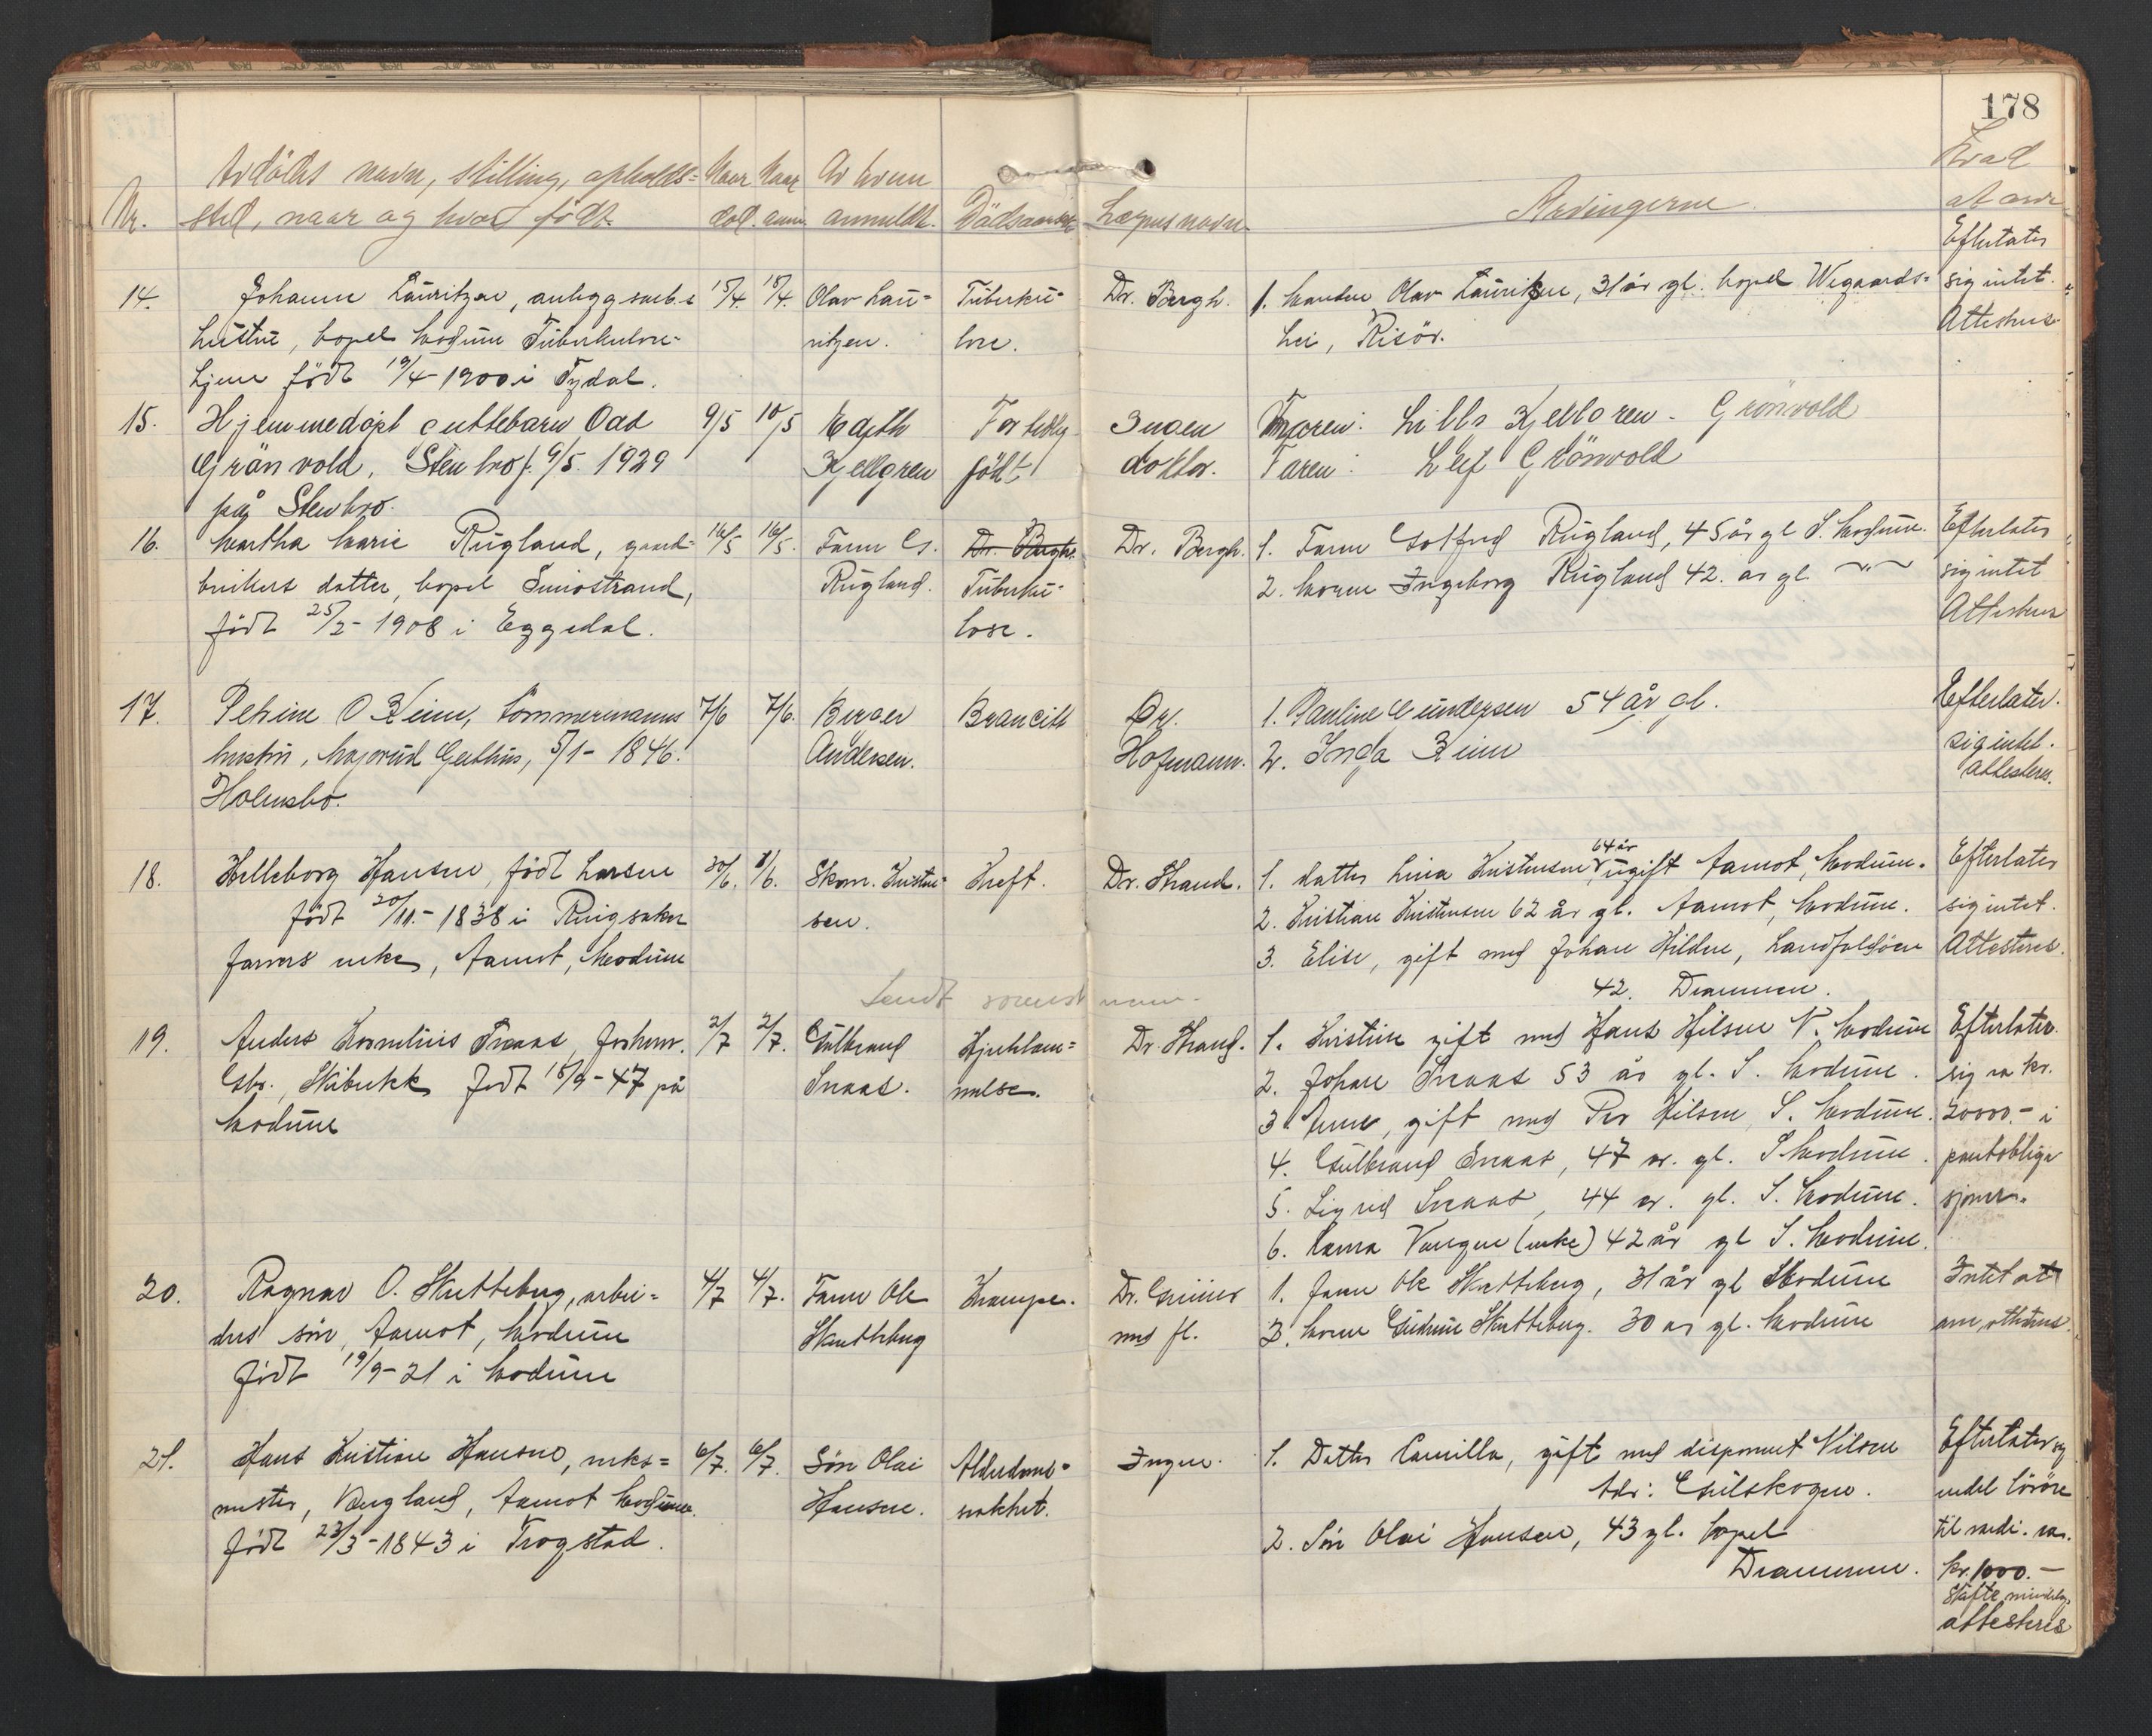 178
Nr.
Avdödes navn, stilling, opholds=
sted, naar og hvor födt.
Naar död.
Naar anm.
Av hvem anmeldt.
Dödsaarsak
Lægens navn.
Arvingerne
Hvad
at arve
14.
Johanne Lauritzen, anleggsarb.s
hustru, bopel Modum Tuberkulose-
hjem födt 19/4-1900 i Tydal.
15/4
18/4.
Olav Lau=
ritzen.
Tuberku=
lose.
Dr. Bergh.
1. Manden Olav Lauritzen, 31 år gl. bopel Wegaards=
hei, Risör.
Efterlater
sig intet.
Attesteres
15.
Hjemmedöpt guttebarn Odd
Grönvold, Stenbro f. 9/5. 1929
på Stenbro.
9/5
10/5
Edith
Kjellgren
For tidlig
födt
Ingen
doktor.
Moren: Lilly Kjellgren - Grönvold
Faren: Leif Grönvold
16.
Martha Marie Rugland, gaard=
brukers datter, bopel Snerostrand,
födt 25/2-1908 i Eggedal.
16/5
16/5.
Faren G.
Rugland.
Dr. Bergh.
Tuberku=
lose.
Dr. Bergh.
1. Faren Gotfred Rugland, 45 år gl S. Modum.
2. Moren Ingeborg Rugland 42. år gl. ~"~
Efterlater
sig intet
Attesteres
17.
Petrine O Keim, tömmermanns
hustru, Majorud Geithus, 5/1- 1846.
Holmsbo.
7/6
7/6.
Birger
Andersen.
Brancitt
Dr.
Hofmann.
1. Pauline Gundersen 54 år gl.
2. Inga Keim
Efterlater.
sig intet.
attesteres.
18.
Helleborg Hansen, födt Larsen
födt 20/11.-1838 i Ringsaker
farvers enke, Aamot, Modum
30/6.
1/6.
Skom. Kristen=
sen.
Kreft.
Dr. Strand.
1. datter Lina Kristensen, 64 år ugift Aamot, Modum.
2. Kristian Kristensen 62 år gl. Aamot, Modum.
3. Elise, gift med Johan Hilden, Landfaldöen
42. Drammen.
Efterlater
sig intet.
Attesteres.
Sendt sorenskriveren
19.
Anders Kornelius Snaas, forhenv.
gbr., Skibukk födt 15/9-47 på
Modum
2/7
2/7.
Gulbrand
Snaas.
Hjertelam=
melse.
Dr. Strand.
1. Kirstine gift med Hans Hilsen N. Modum
2. Johan Snaas 53 år gl. S. Modum.
3. Anne, gift med Per Hilsen S. Modum.
4. Gulbrand Snaas, 47 år. gl. S Modum.
5. Sigrid Snaas, 44 år. gl. S. Modum.
6. Laura Vangen (enke) 42 år gl S. Modum.
Efterlater.
sig ca kr.
20000.- i
pantobliga
sjoner.
20.
Ragnar O. Skutteberg, arbei=
ders sön, Aamot, Modum
födt 19/9-21 i Modum
4/7
4/7.
Faren Ole
Skutteberg
Krampe.
Dr. Grüner
med fl.
1. faren Ole Skutteberg, 31 år gl Modum
2. Moren Gudrun Skutteberg. 30 år gl. Modum
Intet at
arve, attesteres.
21.
Hans Kristian Hansen, verks=
mester, Bergland, Aamot Modum.
födt 23/3-1843 i Trögstad.
6/7.
6/7.
Sön Olai
Hansen.
Alderdoms=
svakhet.
Ingen.
1. Datter Camilla, gift med disponent Nilsen
Adr: Gulskogen.
2. Sön Olai Hansen, 43 gl. bopel
Drammen.
Efterlater sig
endel lösöre
til verdi. ca.
kr. 1000.-
Skifte mindelig.
attesteres